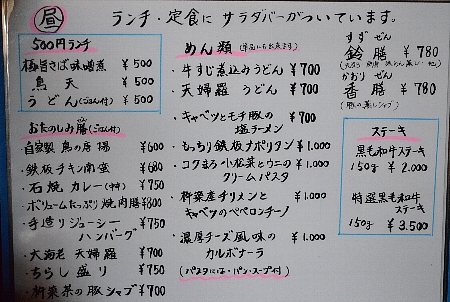 昼 ランチ・定食に サラダバーがついています。
500円ランチ
極旨さば味噌煮 ¥500
鳥天 ¥500
うどん(ごはん付) ¥500
おたのしみ膳(ごはん付)
自家製 鳥の唐揚 ¥600
・鉄板チキン南蛮 ¥680
・石焼カレー(中辛) ¥750
・ボリュームたっぷり焼肉膳 ¥800
・手造りジューシーハンバーグ ¥750
・大海老 天婦羅 ¥700
・ちらし盛り ¥750
・杵築茶の豚シャブ ¥700
めん類
・牛すじ煮込みうどん ¥700
・天婦羅 うどん ¥700
・キャベツとモチ豚の
塩ラーメン ¥700
・もっちり鉄板ナポリタン ¥1.000
・コクまろ小松菜とウニの
クリームパスタ ¥1.000
・杵築産チリメンと
キャベツのペペロンチーノ ¥1.000
・濃厚チーズ風味の
カルボナーラ ¥1.000
(パスタには・パン・スープ付)
すず ぜん
鈴膳 ¥780
かおり ぜん
香膳 ¥780
(豚の蒸しシャブ)
ステーキ
黒毛和牛ステーキ
150g ¥2.000
特選黒毛和牛
ステーキ
150g ¥3.500